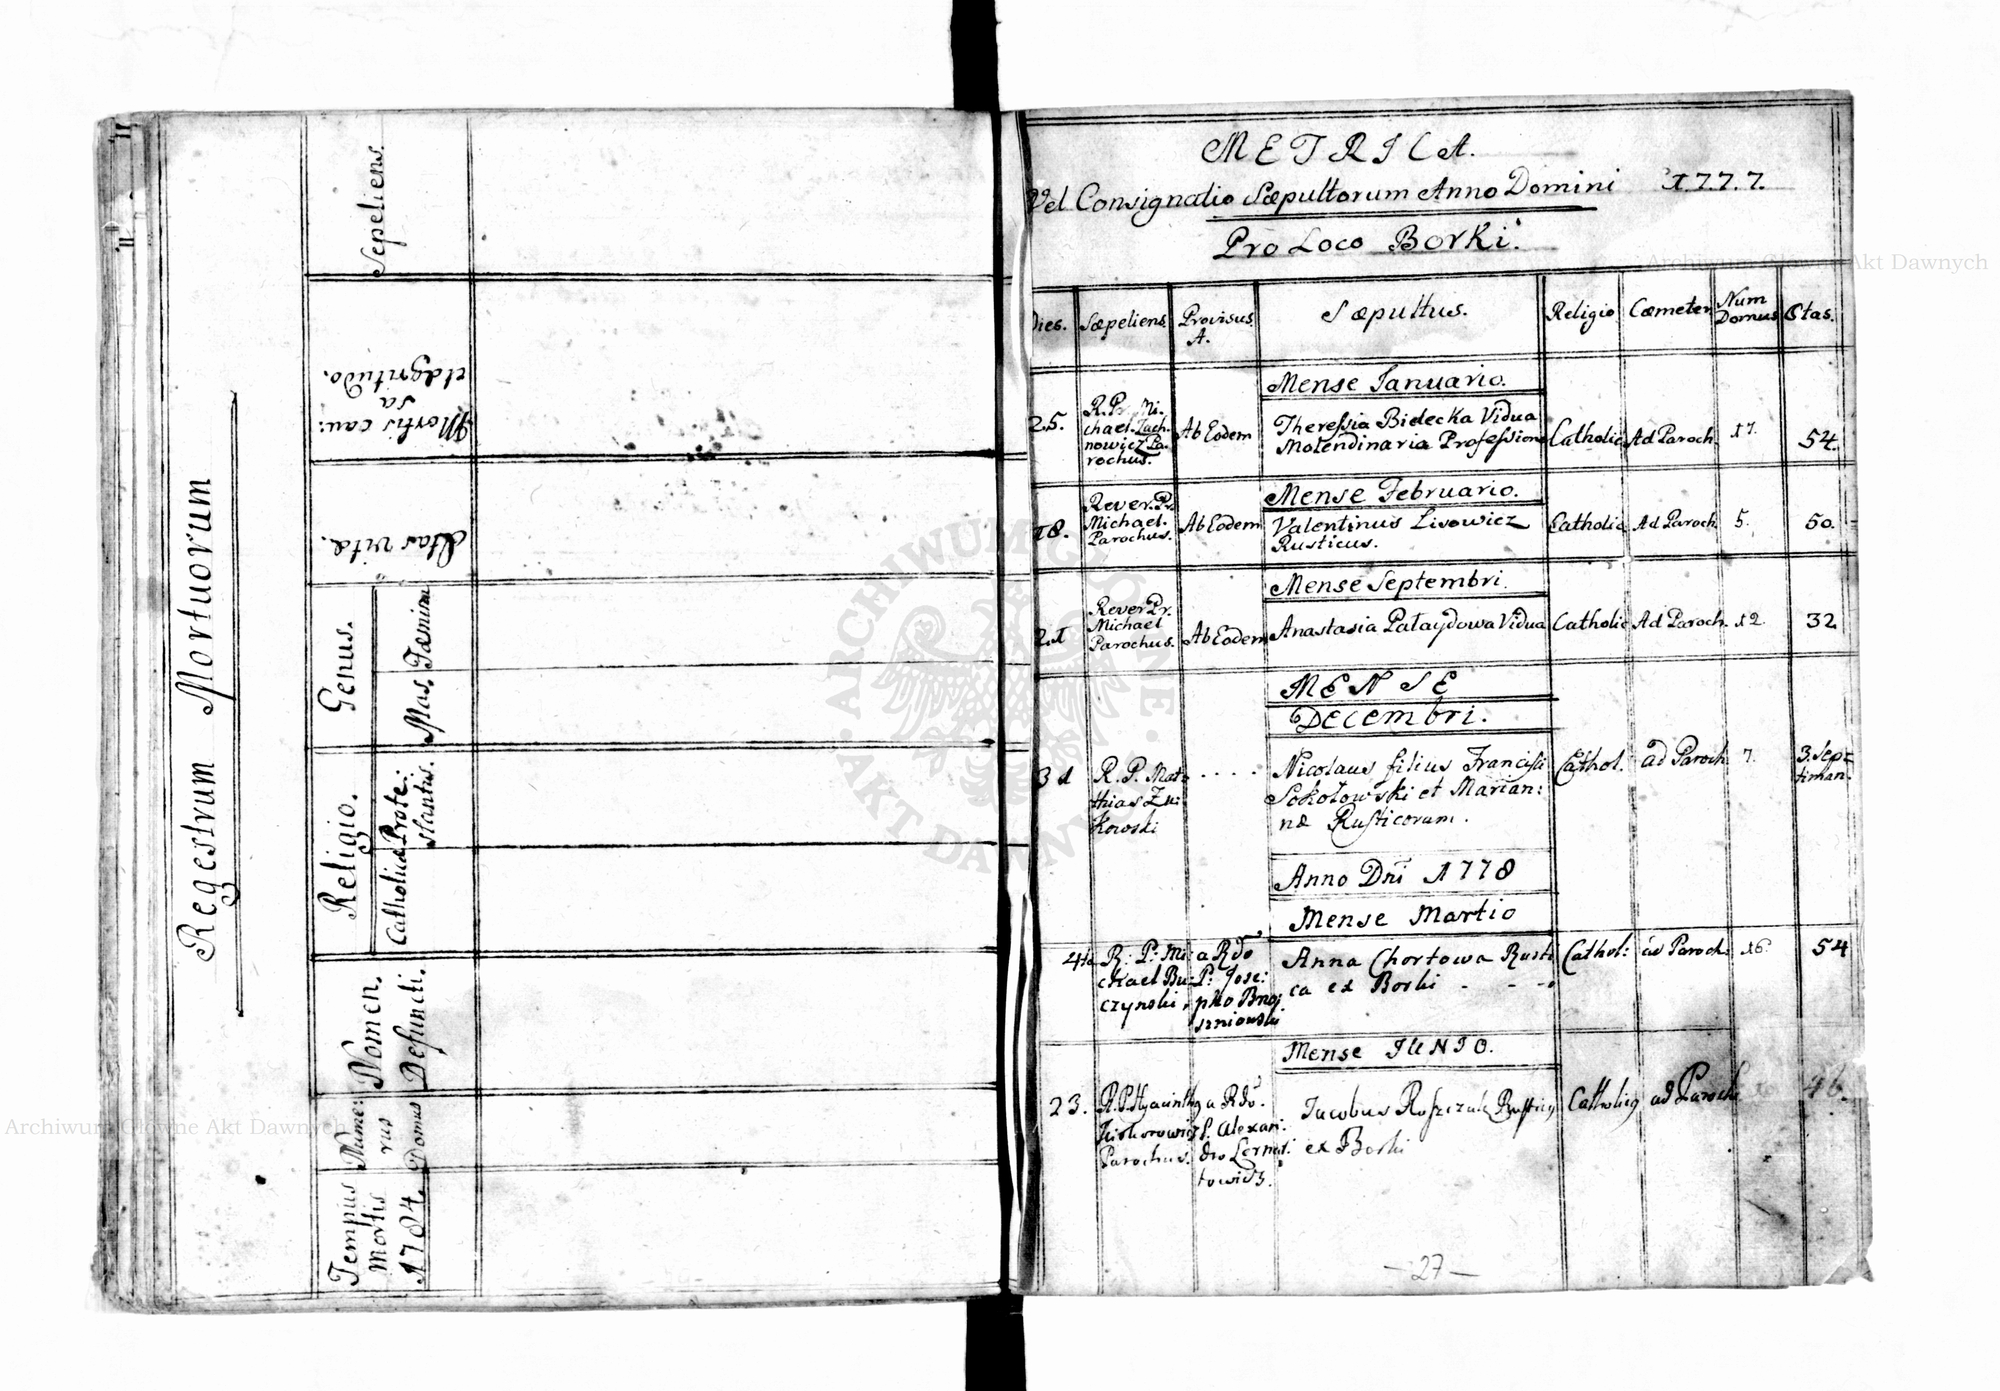 Regestrum Mortuorum
Tempus
Mortis
1784.
Nume:
rus
Domus
Nomen.
Defuncti.
Religio.
Catholica
Prote:
stantis.
Genus.
Mas.
Fæmina
Ætas vitæ.
Mortis cau:
sa
et ægritudo.
Sepeliens.
METRICA.
Vel Consignatio Sæpultorum Anno Domini 1777.
Pro Loco Borki.
Dies.
Sæpeliens.
Provisus
A.
Sæpultus.
Religio
Cæmeter
Num
Domus
Ætas.
Mense Ianuario.
25.
R. Pr. Mi.
chael. Zuch.
nowicz Pa.
rochus.
Ab Eodem
Theressia Bielecka Vidua
Molendinaria Professione
Catholic
Ad Paroch.
17.
54.
Mense Februario.
18.
Rever. Pr.
Michael.
Parochus.
Ab Eodem
Valentinus Lisowicz
Rusticus.
Catholic
Ad Paroch.
5.
50.
Mense Septembri.
21
Rever Pr.
Michael
Parochus.
Ab Eodem
Anastasia Pałaydowa Vidua
Catholic
Ad Paroch.
12.
32
MENSE
Decembri.
31
R. P. Mat
thias Zu:
kowski
. . . .
Nicolaus filius Francisci
Sokołowski et Marian:
næ Rusticorum.
Cathol.
ad Paroch
7.
3. Sep=
timan.
Anno Dni 1778
Mense Martio
4ta
R: P: Mi
chael Bu:
czynski
a Rdo
P: Jose:
pho
Anna Chortowa Rusti
ca ex Borki - - -
Cathol:
ad Paroch.
16.
54
Mense IUNIO.
23.
R. P. Hyacinthus
Parochus.
a Rdo.
P. Alexan:
dro
towicz.
Jacobus Roszczuk Rusticus
ex Borki
Catholicus
ad Paroch
46.
-27-
Archiwum Główne Akt Dawnych
Archiwum Główne Akt Dawnych
ARCHIWUM GŁÓWNE · AKT DAWNYCH ·